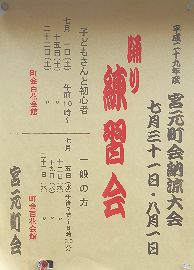 平成二十九年度
宮元町会納涼大会
七月三十一日・八月一日
踊り
練習会
子どもさんと初心者
七月
一日(土)
午前10時〜
十五日(土)
二十二日(土)
町会百花会館
一般の方
七月
町会百花会館
宮元町会